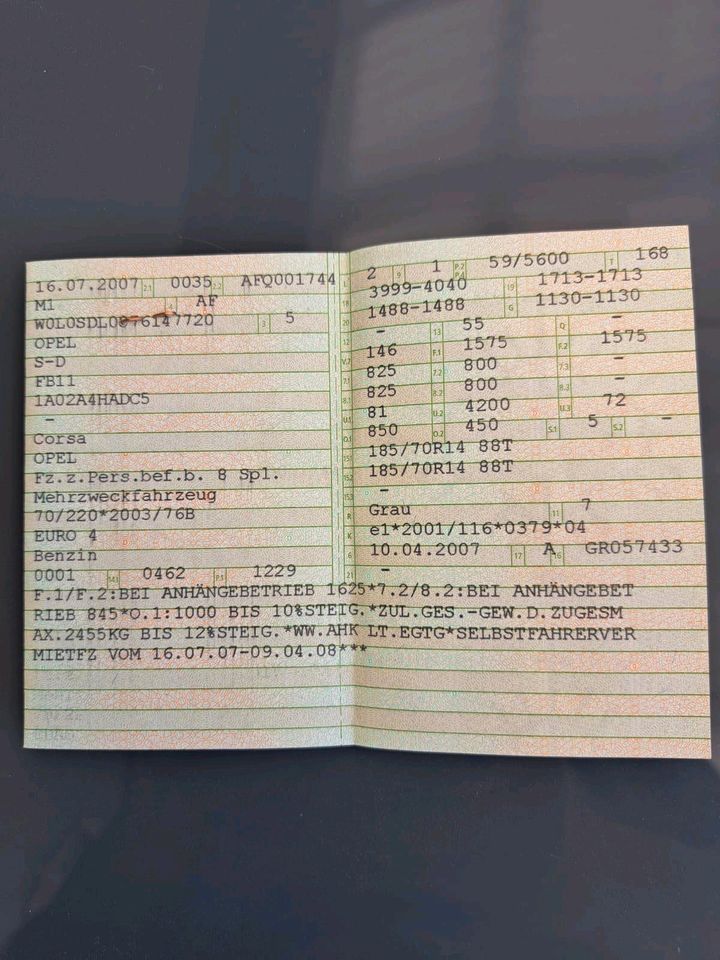 16.07.2007 2.1 0035 2.2 AFQ001744
M1 4 AF
3 5
OPEL
S-D
FB11
1A02A4HADC5
-
Corsa
OPEL
Fz.z.Pers.bef.b. 8 Spl.
Mehrzweckfahrzeug
70/220*2003/76B
EURO 4
Benzin
0001 0462 P.1 1229
L 2 9 1 P.2 P.4 59/5600 T 168
18 3999-4040 19 1713-1713
20 1488-1488 G 1130-1130
12 - 13 55 Q -
V.7 146 F.1 1575 F.2 1575
7.1 825 7.2 800 7.3 -
8.1 825 8.2 800 8.3 -
U.1 81 U.2 4200 U.3 72
O.1 850 O.2 450 S.1 5 S.2 -
185/70R14 88T
185/70R14 88T
-
R Grau 11 7
K e1*2001/116*0379*04
6 10.04.2007 17 A 16 GR057433
21 -
F.1/F.2:BEI ANHÄNGEBETRIEB 1625*7.2/8.2:BEI ANHÄNGEBET
RIEB 845*O.1:1000 BIS 10%STEIG.*ZUL.GES.-GEW.D.ZUGESM
AX.2455KG BIS 12%STEIG.*WW.AHK LT.EGTG*SELBSTFAHRERVER
MIETFZ VOM 16.07.07-09.04.08***